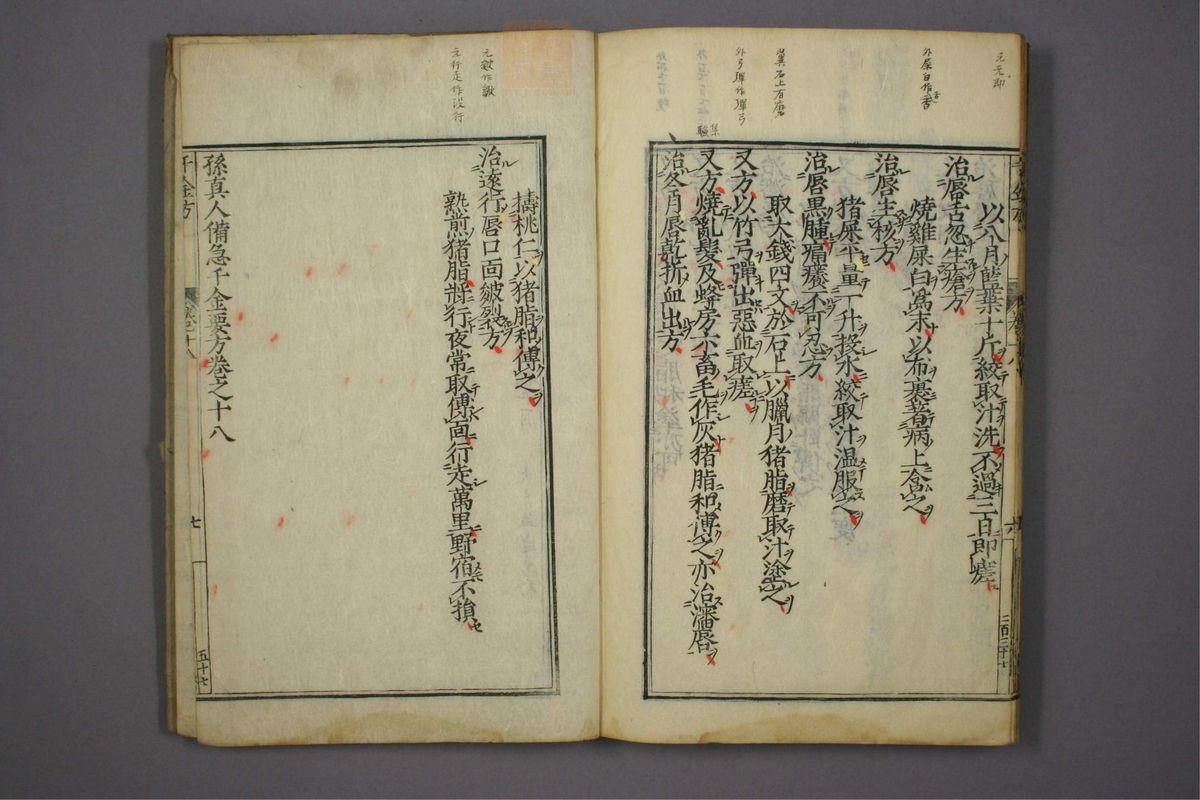 以八月藍葉十斤絞取汁洗不過三日即瘥
治唇舌忽生瘡方
燒雞屎白為末以布裹著病上含之
治唇生核方
猪屎平量一升投水絞取汁温服之
治唇黒腫痛癢不可忍方
取大錢四文於石上以臘月猪脂磨取汁塗之
又方以竹弓彈出惡血取瘥
又方燒亂髮及蜂房六畜毛作灰猪脂和傅之亦治瀋唇
治冬月唇乾拆血出方
擣桃仁以猪脂和傅之
治遠行唇口面皴裂方
熟煎猪脂將行夜常取傅面行走萬里野宿不損
孫真人備急千金要方卷之十八
千金方
七
五十七
外屎白作香
翼石上有磨
外弓彈作彈弓
元皴作皺
元行走作沒行